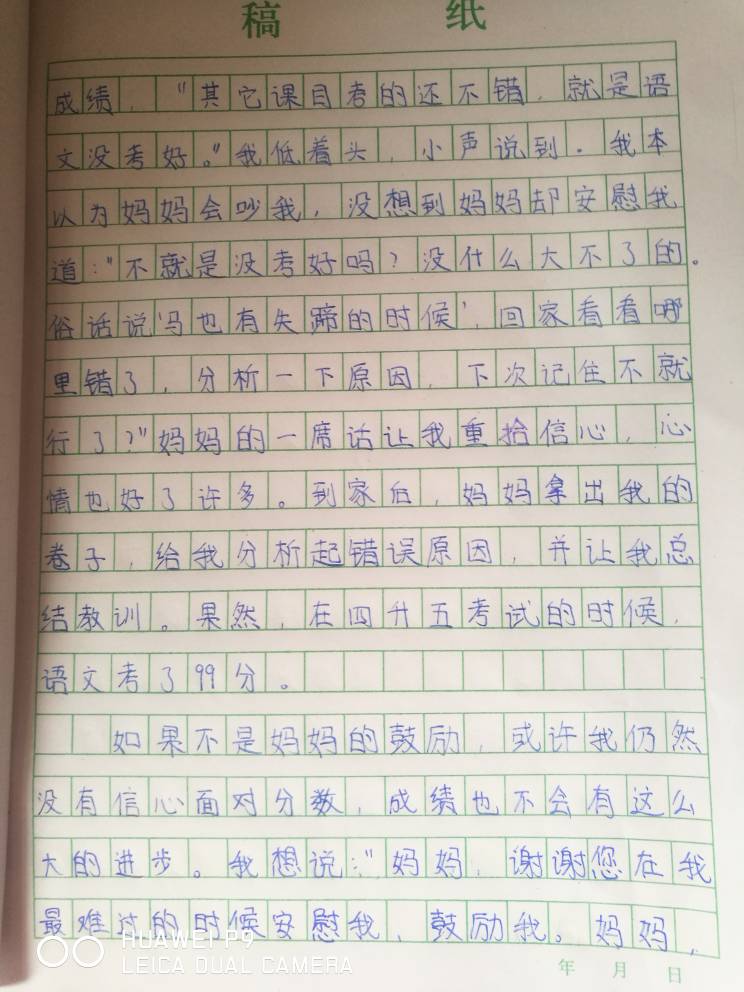 稿 纸
成绩，“其它课目考的还不错，就是语
文没考好。”我低着头，小声说到。我本
以为妈妈会吵我，没想到妈妈却安慰我
道：“不就是没考好吗？没什么大不了的。
俗话说‘马也有失蹄的时候’，回家看看哪
里错了，分析一下原因，下次记住不就
行了？”妈妈的一席话让我重拾信心，心
情也好了许多。到家后，妈妈拿出我的
卷子，给我分析起错误原因，并让我总
结教训。果然，在四升五考试的时候，
语文考了99分。
如果不是妈妈的鼓励，或许我仍然
没有信心面对分数，成绩也不会有这么
大的进步。我想说：“妈妈，谢谢您在我
最难过的时候安慰我，鼓励我。妈妈，
HUAWEI P9
LEICA DUAL CAMERA
年 月 日